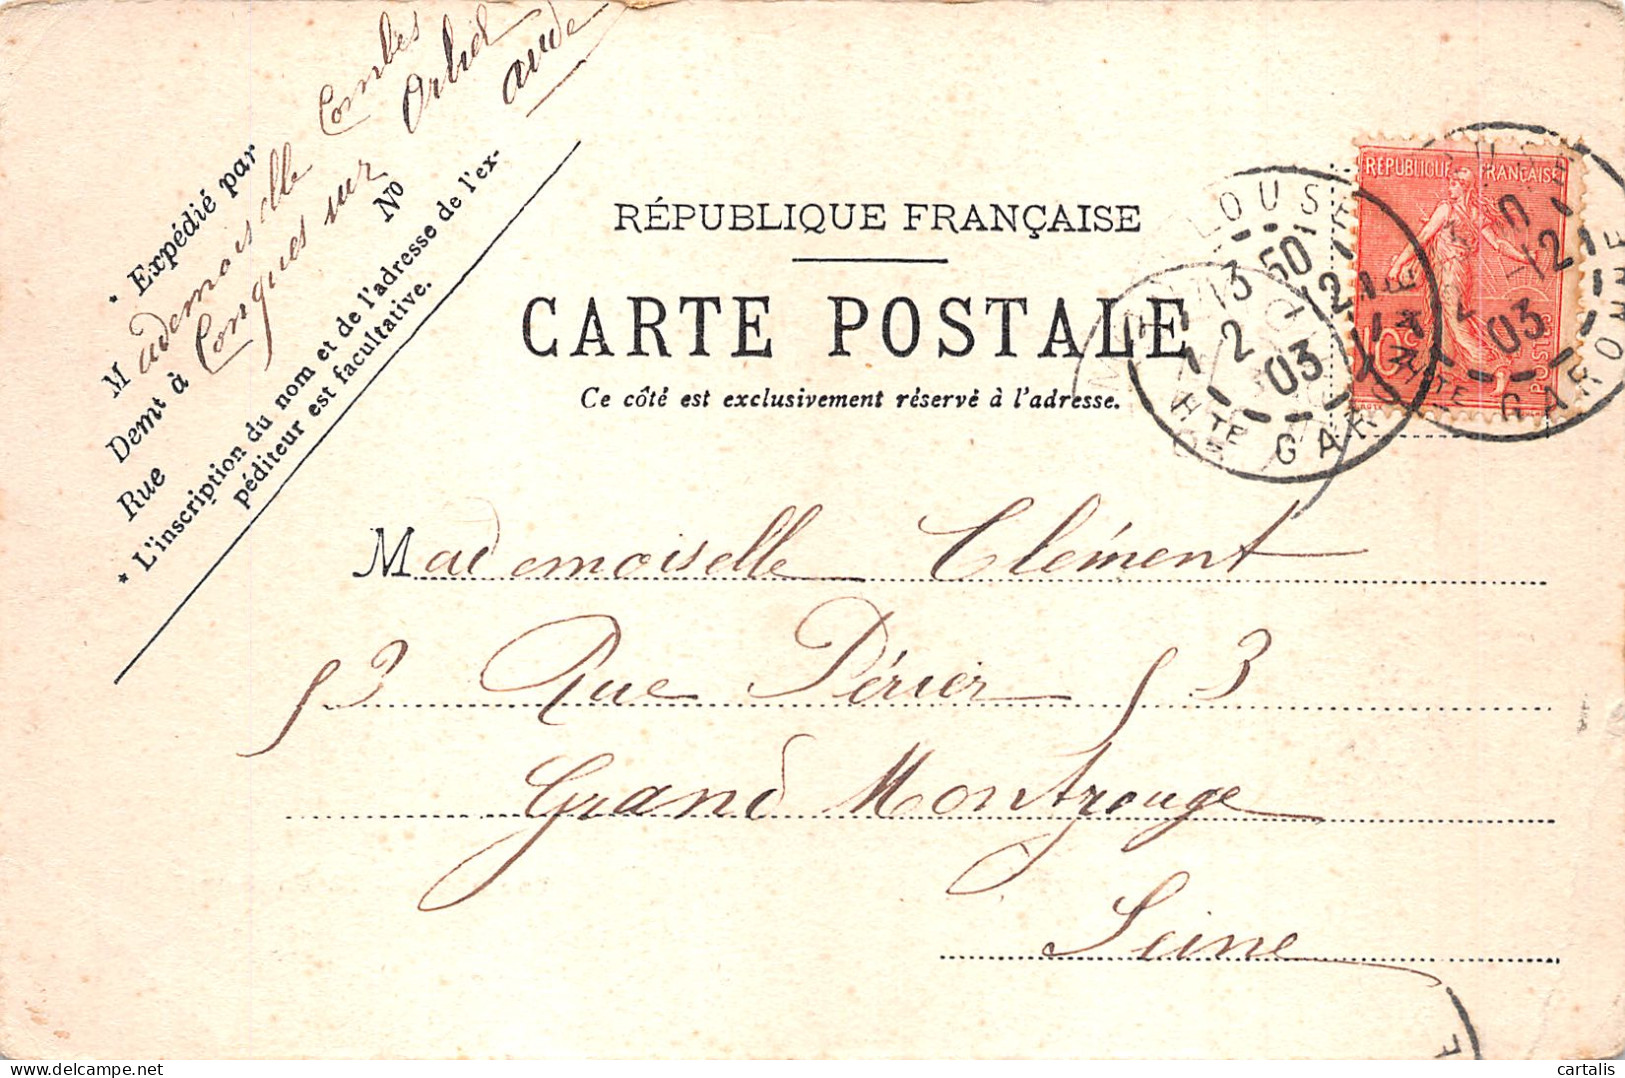 * Expédié par
Mademoiselle Combes
Demt à Conques sur Orbiel
Rue Nº aude
* L'inscription du nom et de l'adresse de l'ex-
péditeur est facultative.
RÉPUBLIQUE FRANÇAISE
CARTE POSTALE
Ce côté est exclusivement réservé à l'adresse.
RÉPUBLIQUE FRANÇAISE
10c
POSTES
13 50
2 -12
03
HTE GARONNE
-12
03
HTE GARONNE
Mademoiselle Clément
53 Rue Périer 53
Grand Montrouge
Seine
cartalis